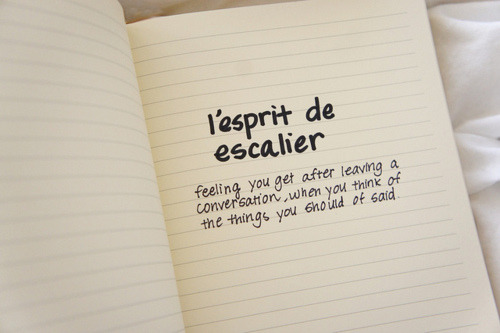 l'esprit de
escalier
feeling you get after leaving a
conversation, when you think of
the things you should of said.